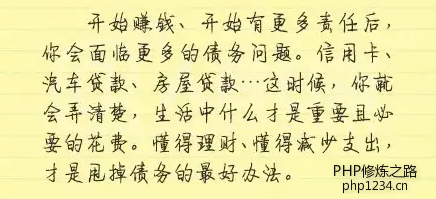 开始赚钱、开始有更多责任后，
你会面临更多的债务问题。信用卡、
汽车贷款、房屋贷款…这时候，你就
会弄清楚，生活中什么才是重要且必
要的花费。懂得理财、懂得减少支出，
才是甩掉债务的最好办法。
PHP修炼之路
php1234.cn